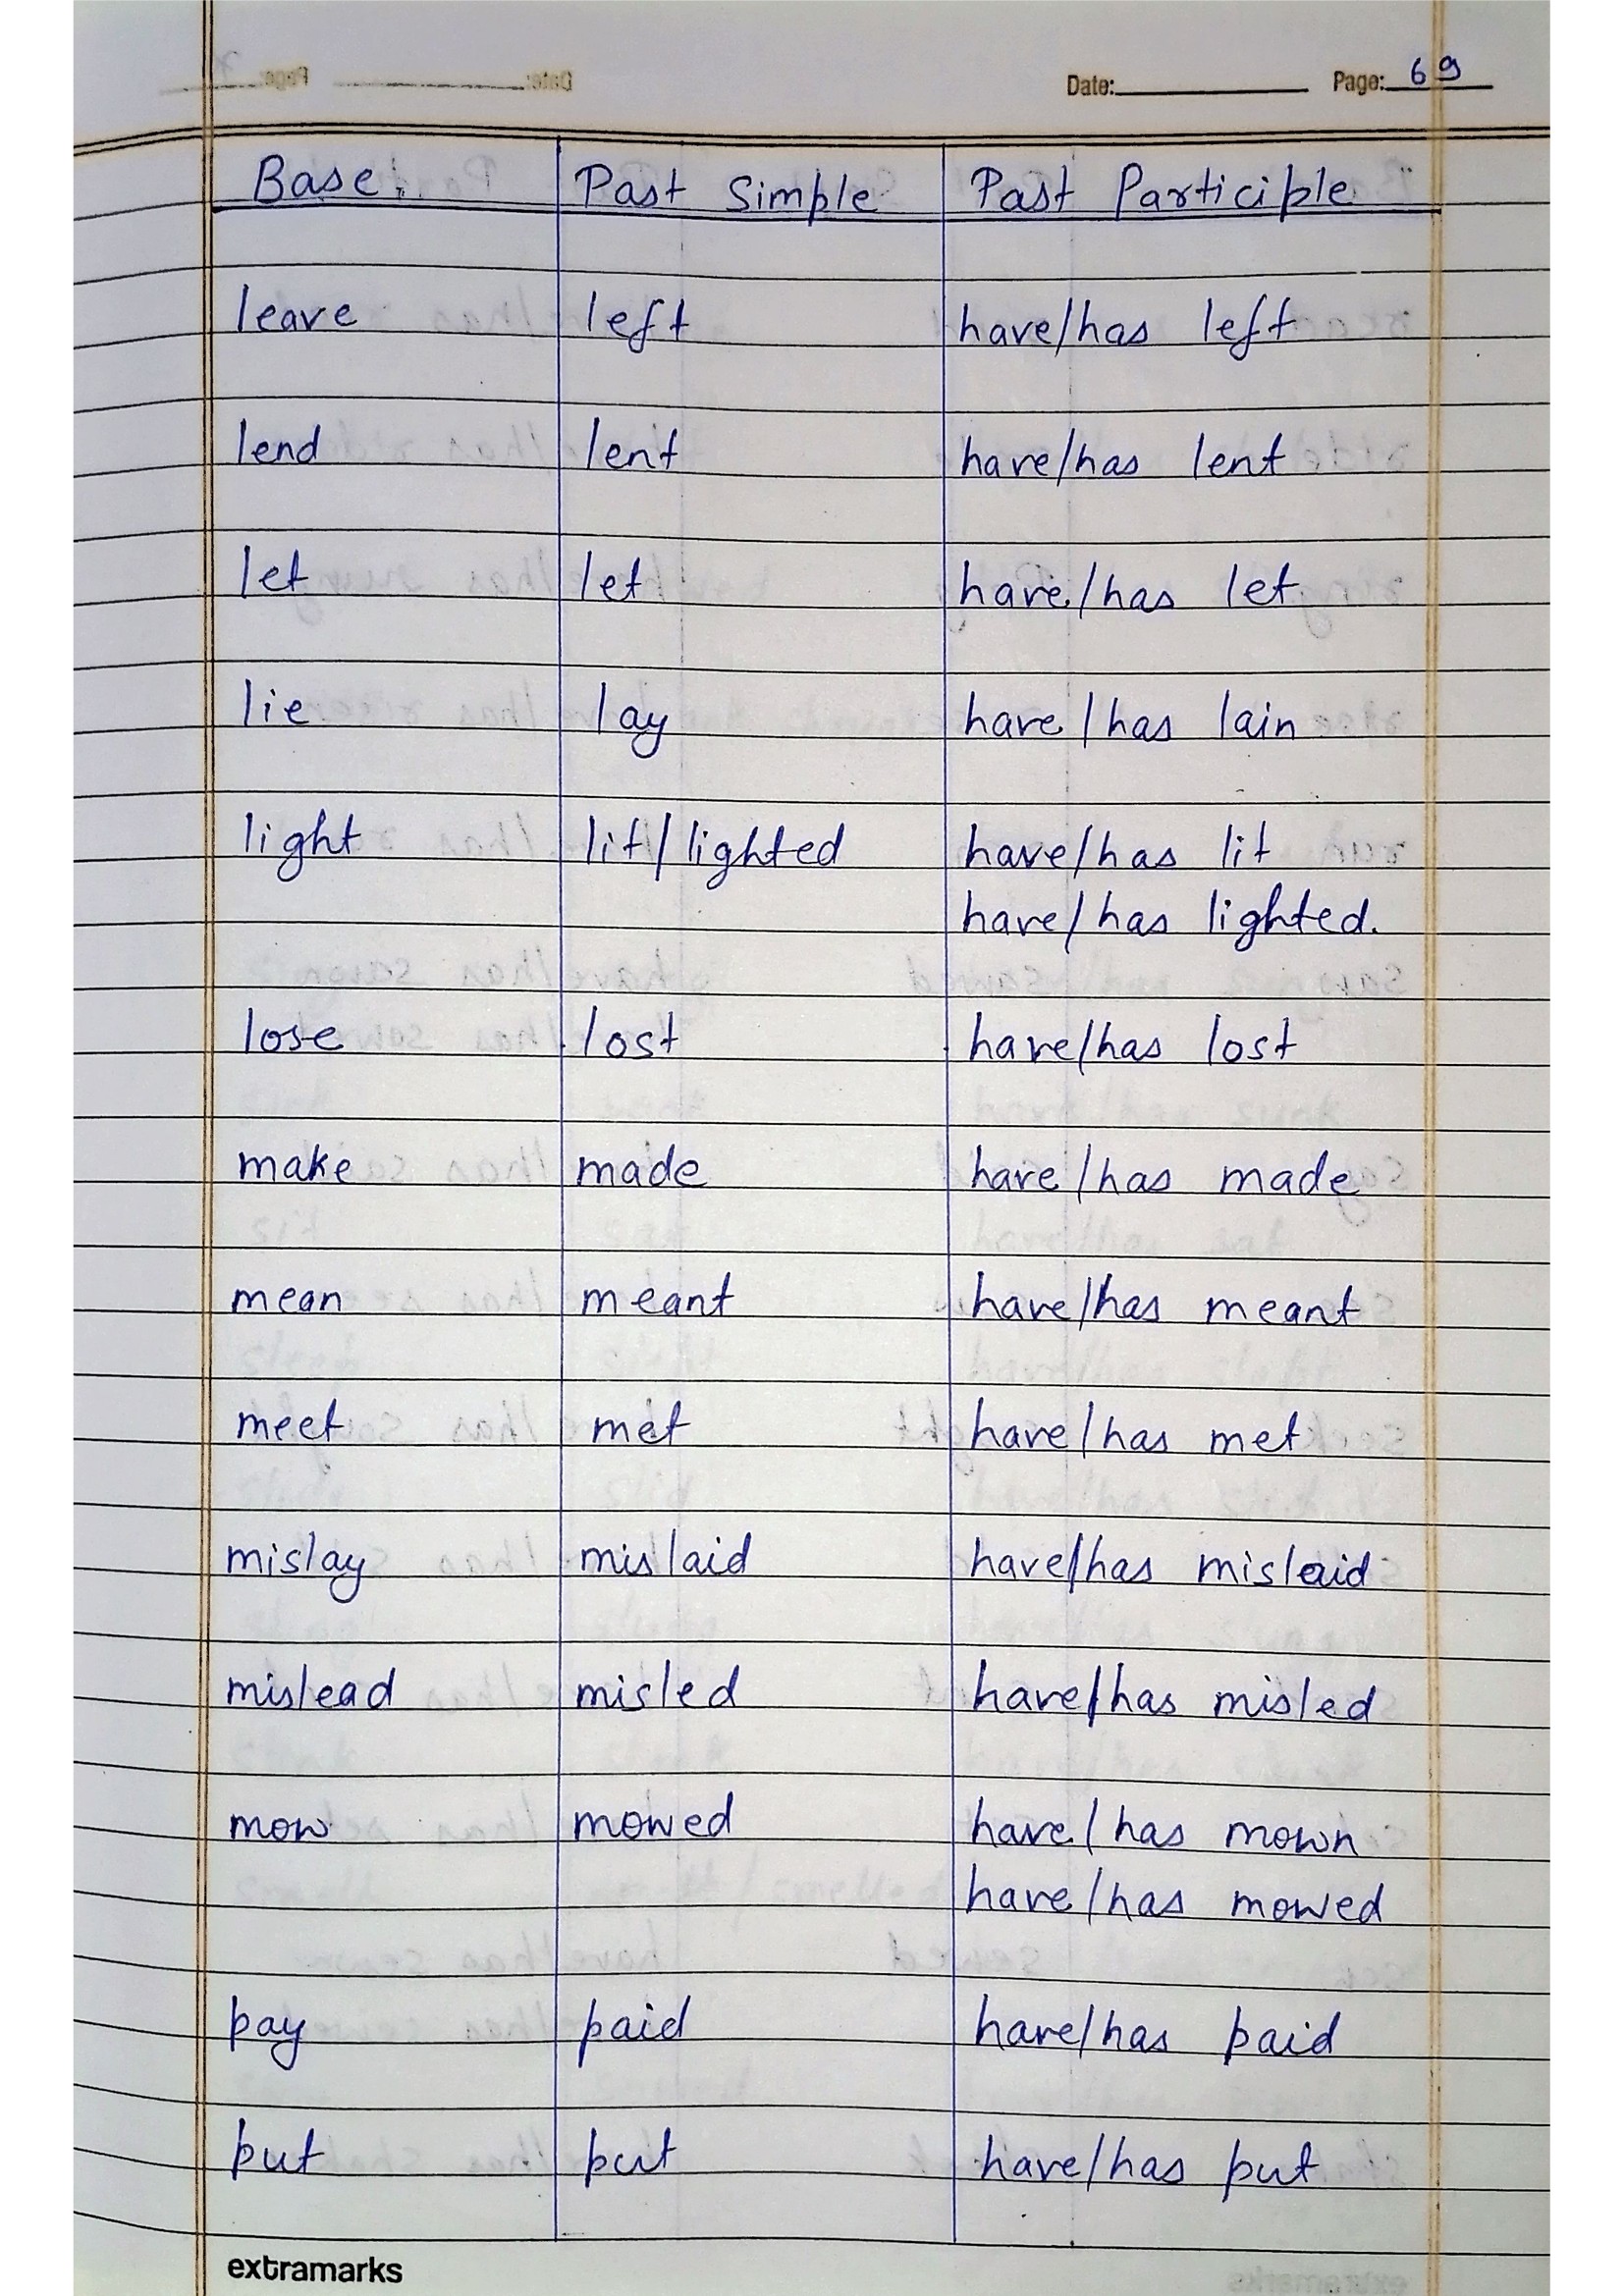 Date: Page: 69
Base: Past Simple Past Participle
leave left have/has left
lend lent have/has lent
let let have/has let
lie lay have/has lain
light lit/lighted have/has lit
have/has lighted.
lose lost have/has lost
make made have/has made
mean meant have/has meant
meet met have/has met
mislay mislaid have/has mislaid
mislead misled have/has misled
mow mowed have/has mown
have/has mowed
pay paid have/has paid
put put have/has put
extramarks